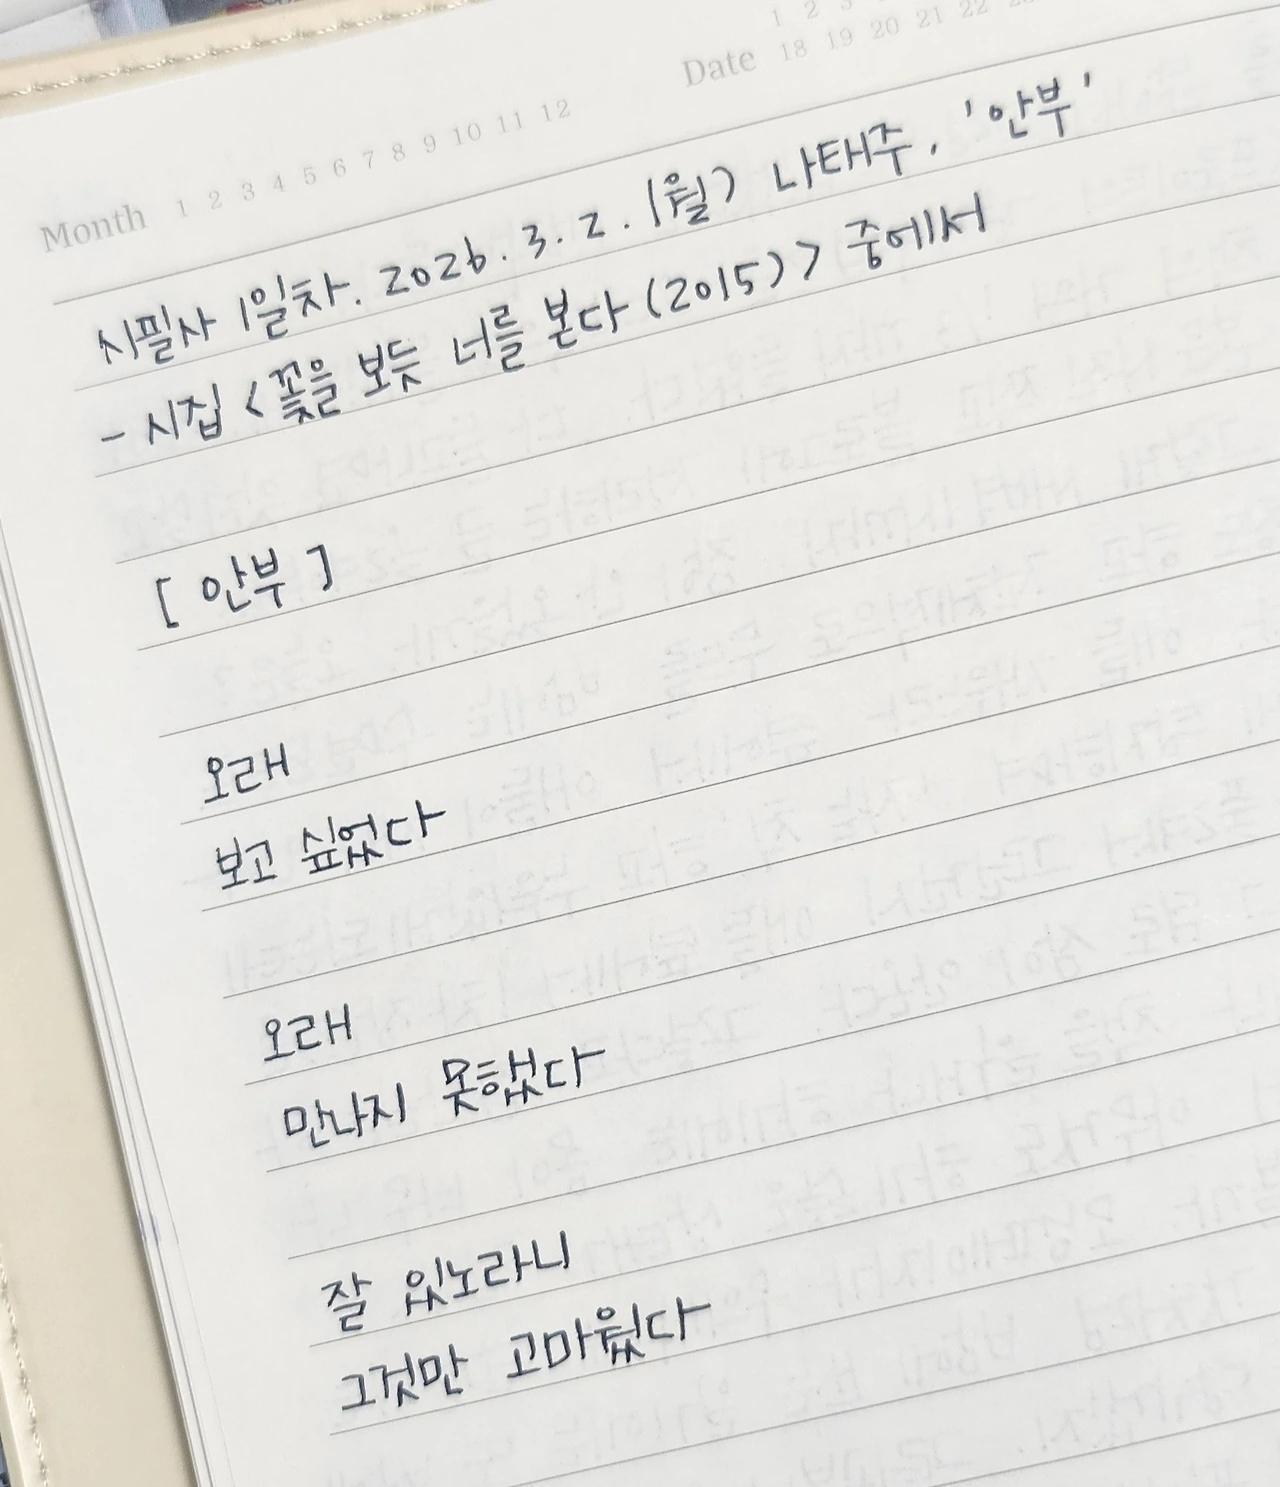 1 2 3
Date 18 19 20 21 22
Month 1 2 3 4 5 6 7 8 9 10 11 12
시필사 1일차. 2026. 3. 2. (월) 나태주, '안부'
- 시집 <꽃을 보듯 너를 본다 (2015)> 중에서
[ 안부 ]
오래
보고 싶었다
오래
만나지 못했다
잘 있노라니
그것만 고마웠다